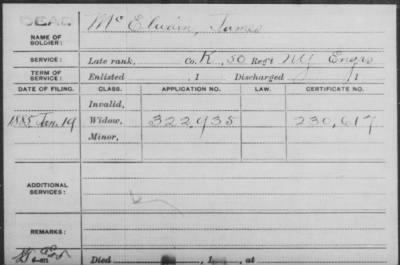 DEAD
Mc Elwain, James
NAME OF
SOLDIER:
SERVICE: Late rank, Co. K, 50 Regt NY Engrs
TERM OF
SERVICE: Enlisted , 1 Discharged , 1
DATE OF FILING. CLASS. APPLICATION NO. LAW. CERTIFICATE NO.
Invalid,
1885 Jan. 19 Widow, 322,935 230,617
Minor,
ADDITIONAL
SERVICES:
REMARKS:
Died , 1 , at